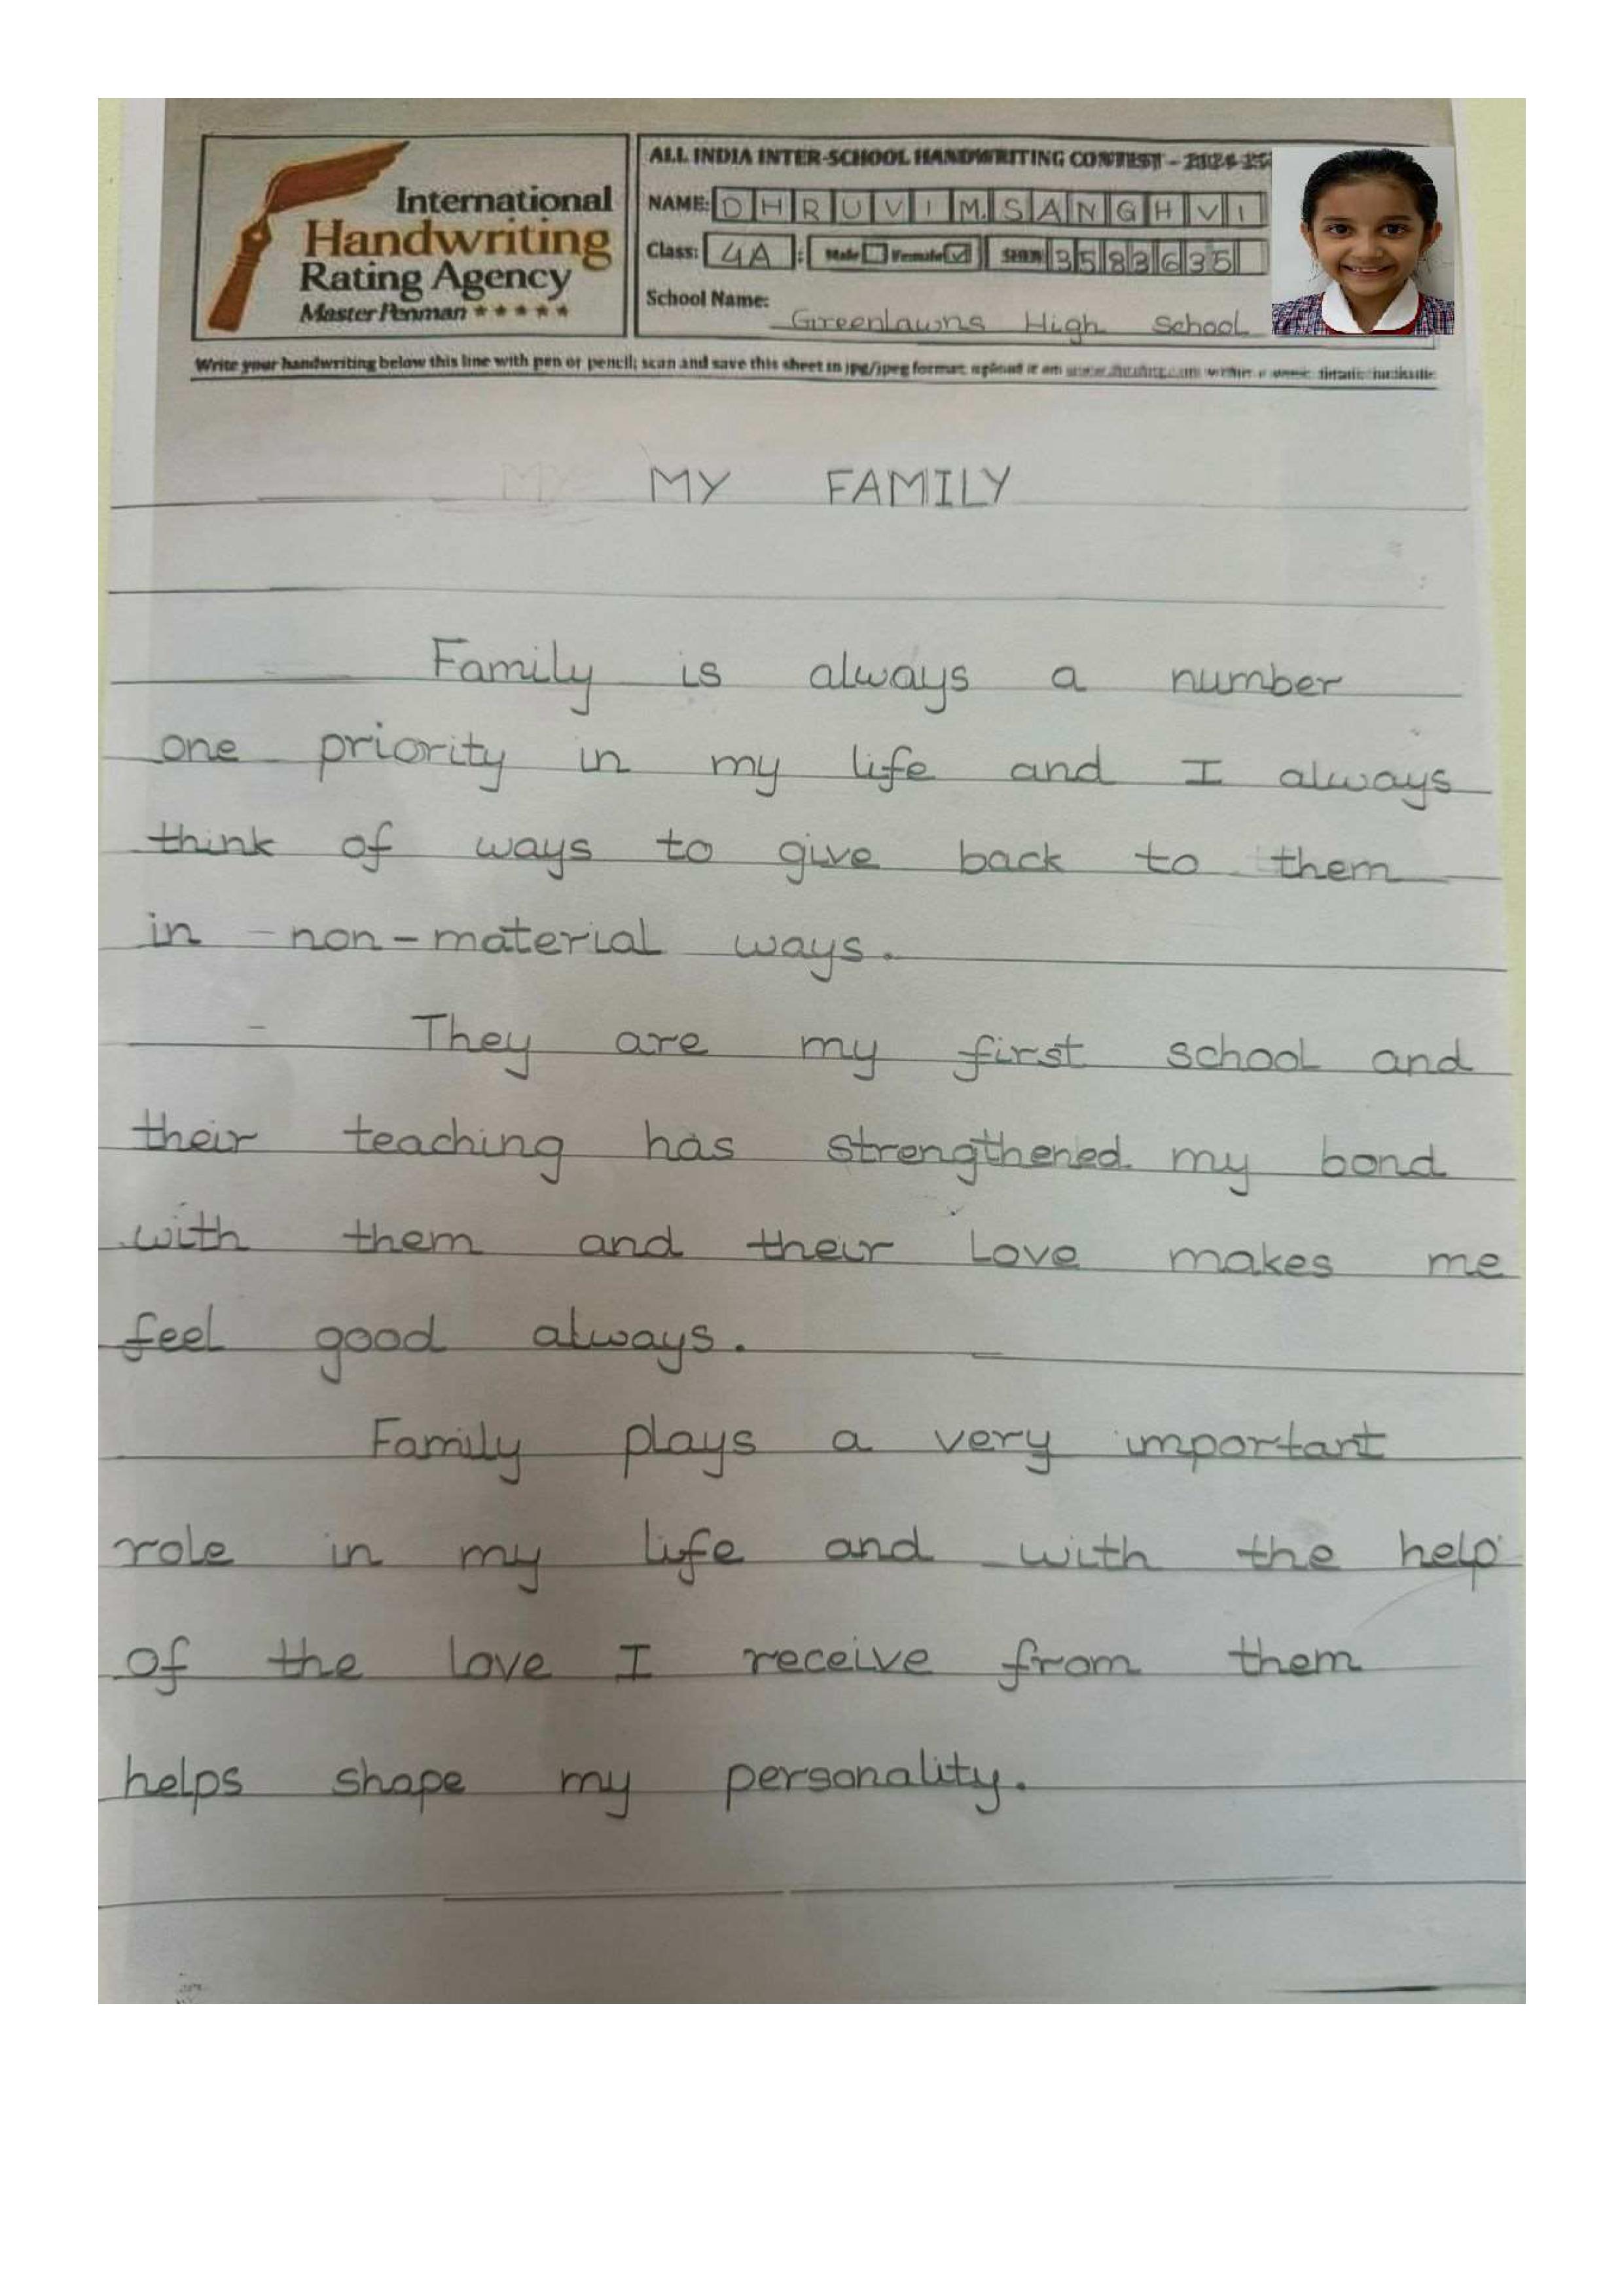 International
Handwriting
Rating Agency
Master Penman
ALL INDIA INTER-SCHOOL HANDWRITING CONTEST - 2024-25
NAME: DHRUVI M. SANGHVI
Class: 4A Male Female 3583635
School Name: Greenlawns High School
Write your handwriting below this line with pen or pencil; scan and save this sheet in jpg/jpeg format
MY FAMILY
Family is always a number
one priority in my life and I always
think of ways to give back to them
in non-material ways.
They are my first school and
their teaching has strengthened my bond
with them and their love makes me
feel good always.
Family plays a very important
role in my life and with the help
of the love I receive from them
helps shape my personality.